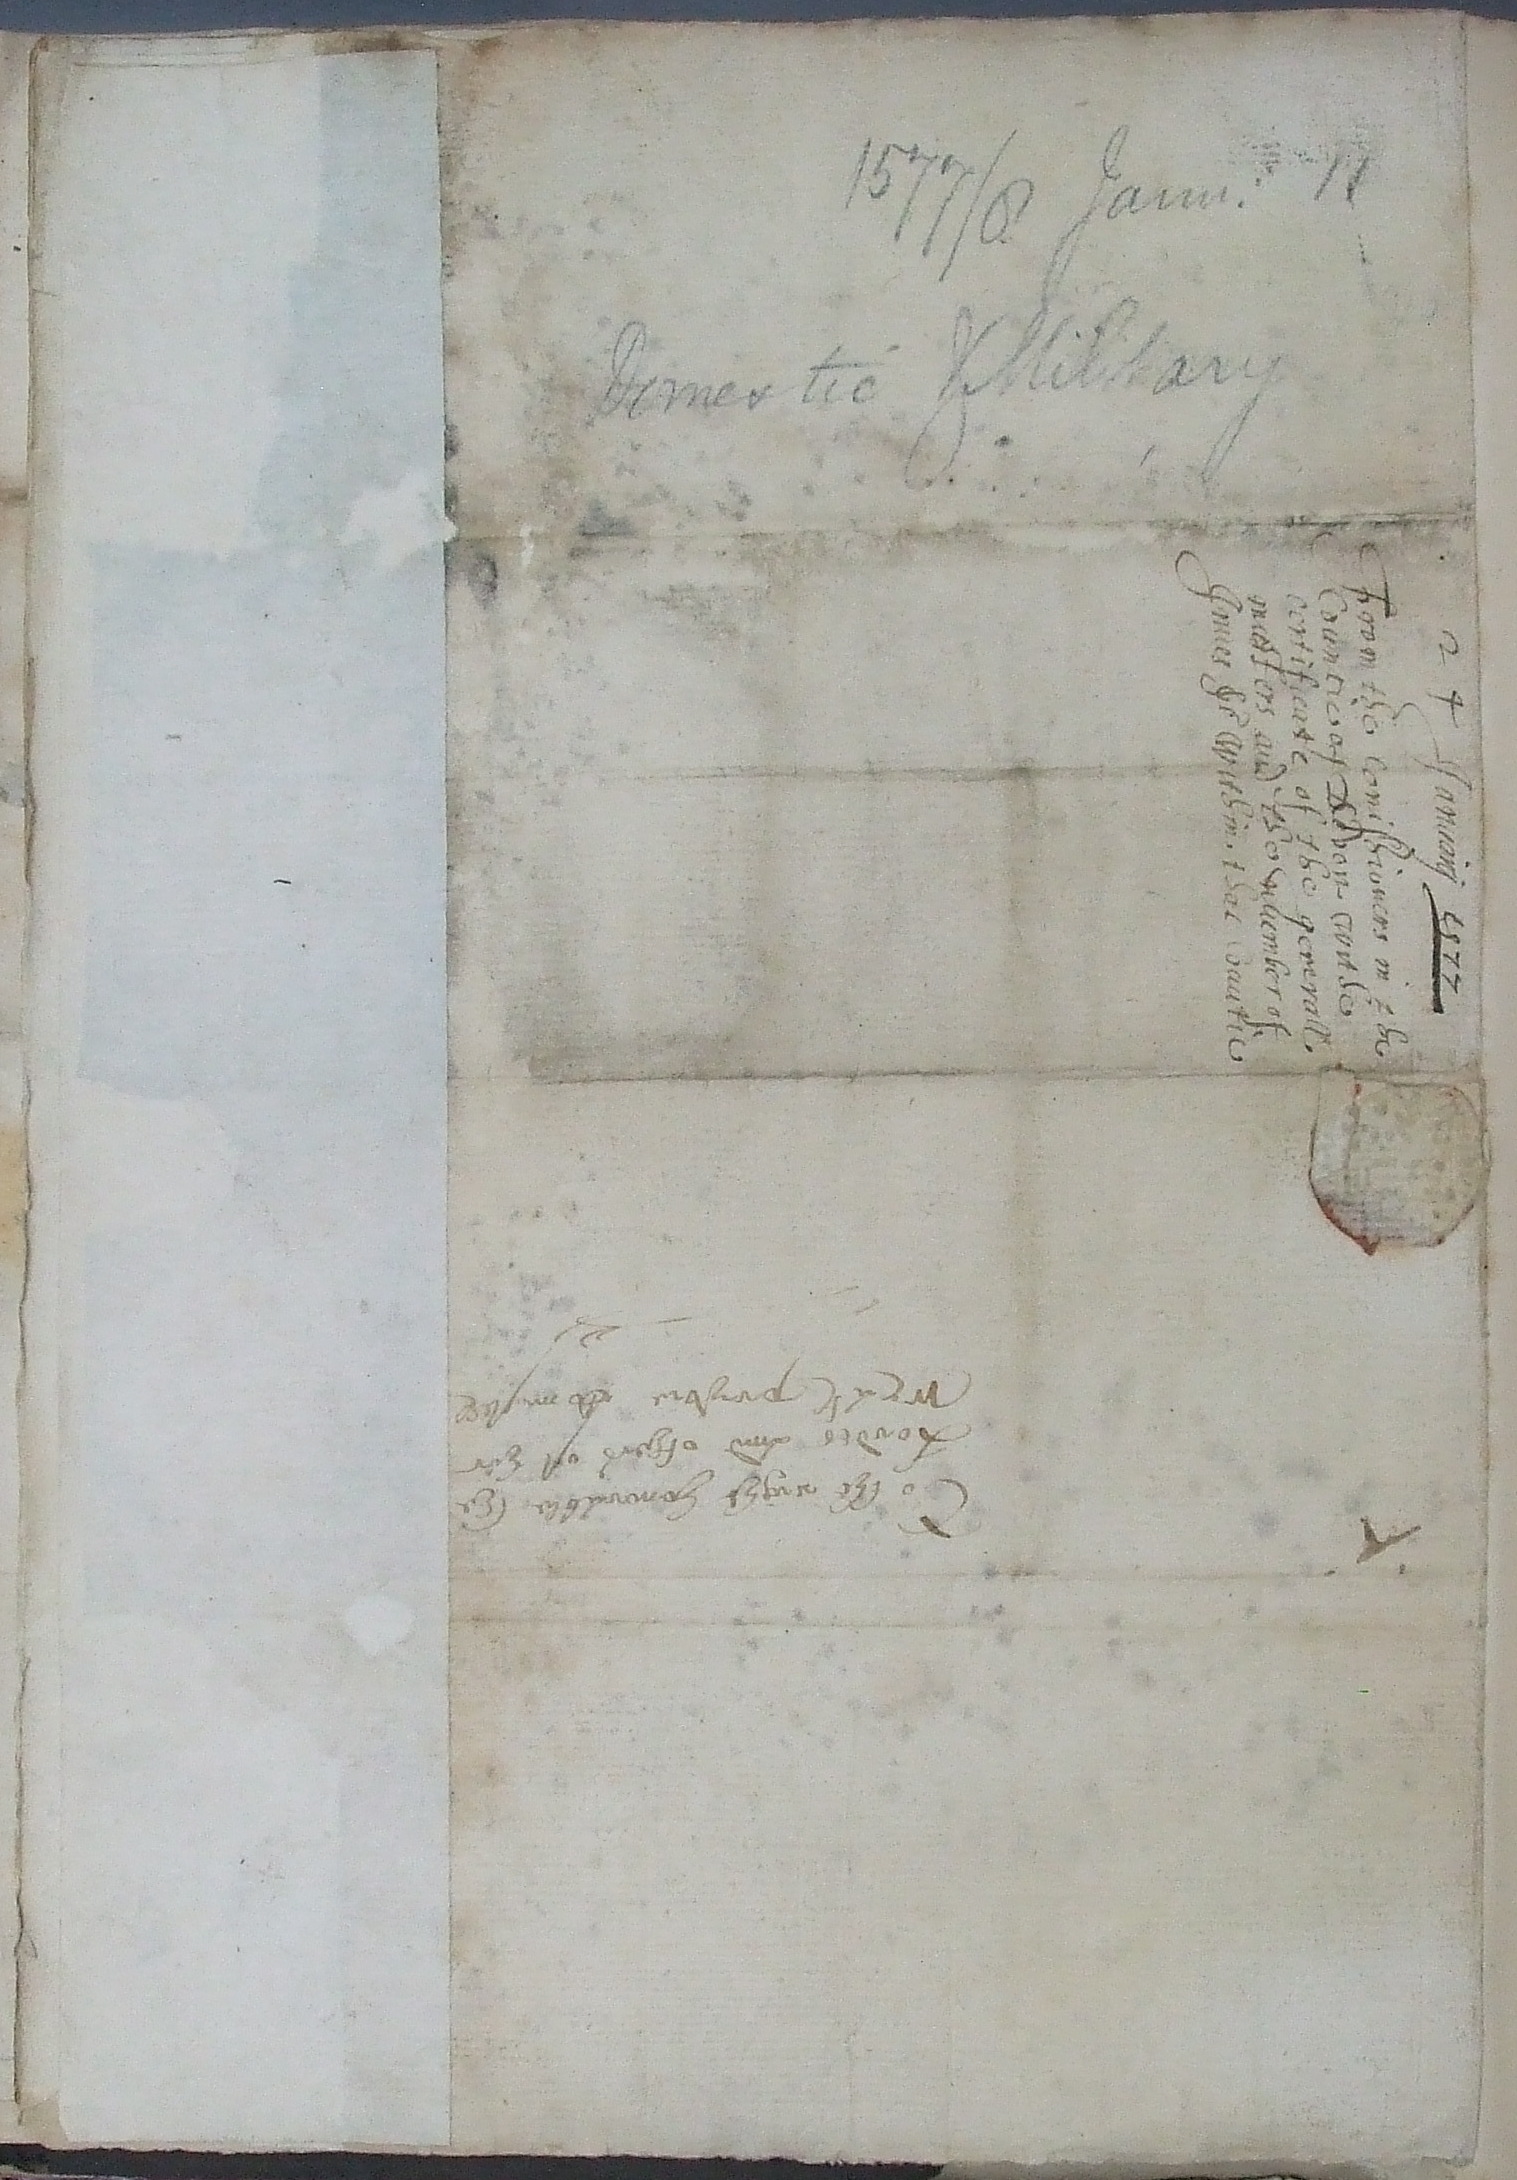 1577/8 Janu: 11
Domestic & Military
24 January 1577
From the Comissioners in the
Countie of Devon with the
certificate of the generall
musters and the number of
Innes &c within that Countie
To the right honorable the
Lordes and others of her
Ma<sup>ties</sup> privie